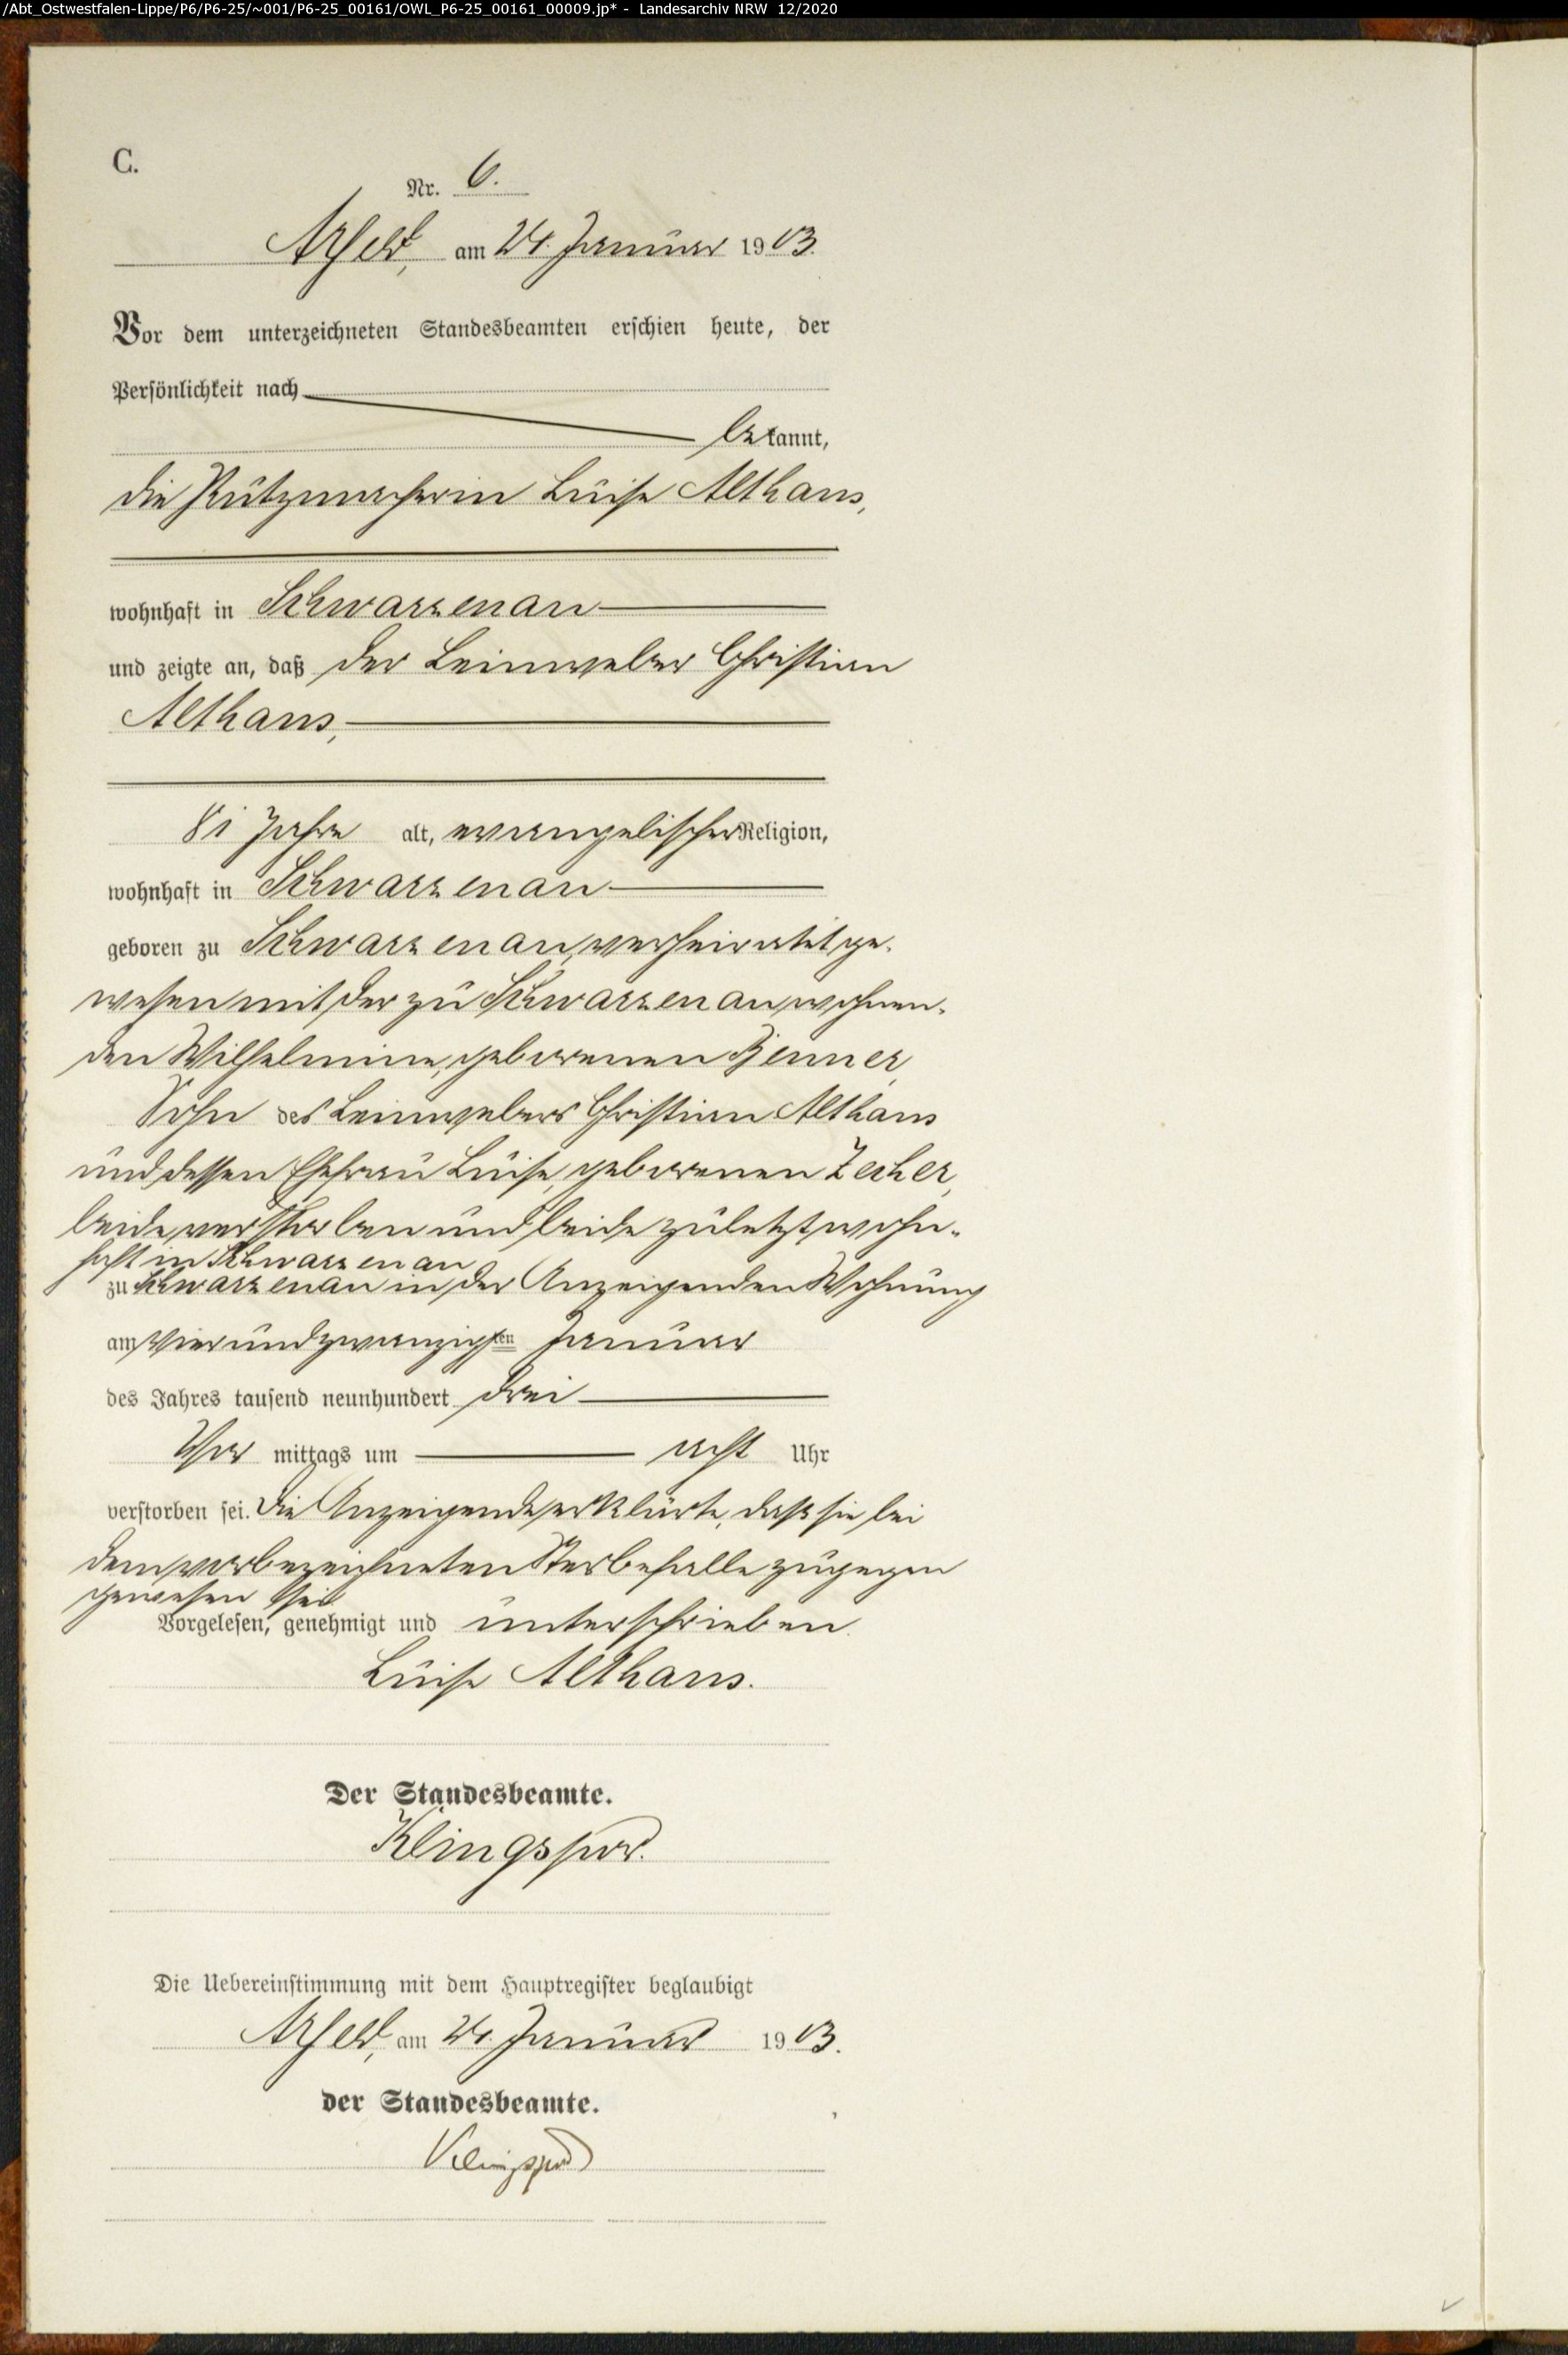 /Abt_Ostwestfalen-Lippe/P6/P6-25/~001/P6-25_00161/OWL_P6-25_00161_00009.jp* - Landesarchiv NRW 12/2020
C.
Nr. 6.
Arfeld, am 24. Januar 1903.
Vor dem unterzeichneten Standesbeamten erschien heute, der
Persönlichkeit nach
bekannt,
die Putzmacherin Luise Althaus,
wohnhaft in Schwarzenau
und zeigte an, daß der Leinweber Christian
Althaus,
81 Jahre alt, evangelischer Religion,
wohnhaft in Schwarzenau
geboren zu Schwarzenau, verheiratet ge-
wesen mit der zu Schwarzenau wohnen-
den Wilhelmine, geborenen Benner,
Sohn des Leinwebers Christian Althaus
und dessen Ehefrau Luise, geborenen Zecher,
beide verstorben und beide zuletzt wohn-
haft in Schwarzenau
zu Schwarzenau in der Anzeigenden Wohnung
am vierundzwanzigsten Januar
des Jahres tausend neunhundert drei
Vor mittags um acht Uhr
verstorben sei. Die Anzeigende erklärte, daß sie bei
dem vorbezeichneten Sterbefalle zugegen
gewesen sei
Vorgelesen, genehmigt und unterschrieben.
Luise Althaus.
Der Standesbeamte.
Klingspor.
Die Uebereinstimmung mit dem Hauptregister beglaubigt
Arfeld, am 24. Januar 1903.
der Standesbeamte.
Klingspor